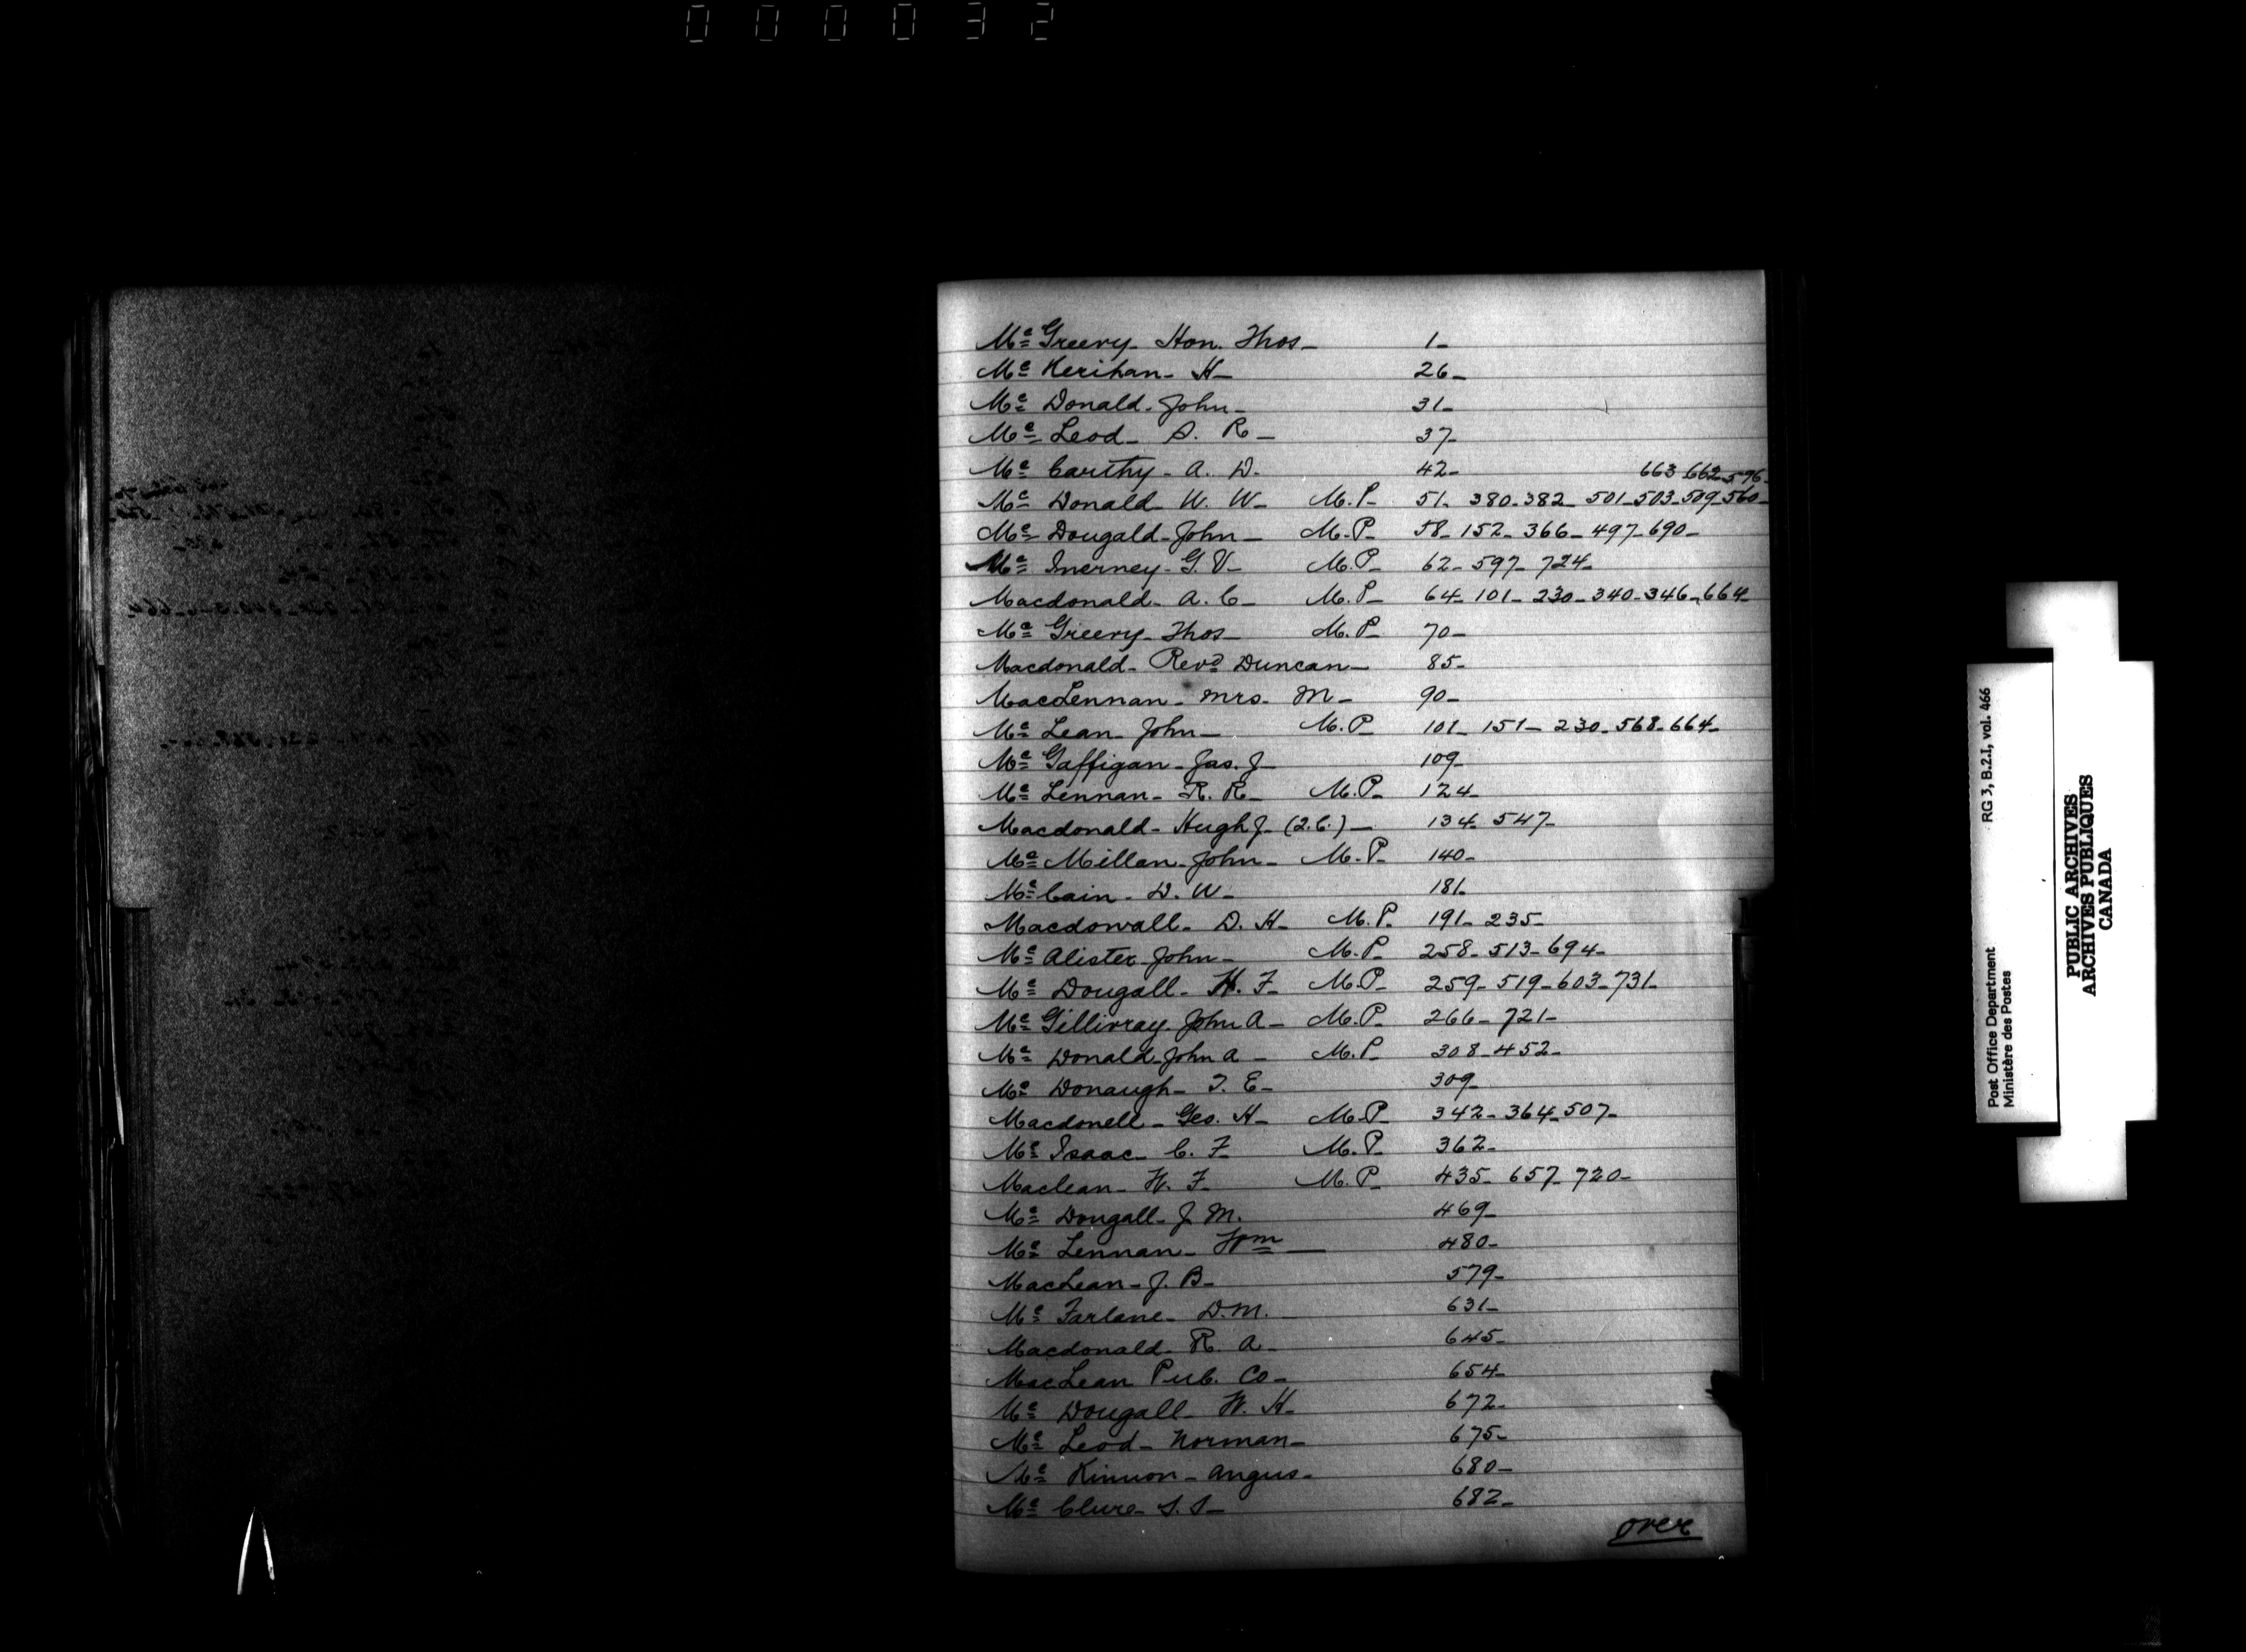 000032
Mc Greevy - Hon. Thos - 1 -
Mc Kerihan - H - 26 -
Mc Donald - John - 31 -
Mc Leod - S. R - 37 -
Mc Carthy - A. D. 42 - 663-662-576-
Mc Donald W. W - M.P. 51 - 380-382 - 501-503-509-560-
Mc Dougald - John - M.P - 58 - 152 - 366 - 497-690 -
Mc Inerney - G. V - M.P - 62 - 597 - 724 -
Macdonald - A. C - M.P - 64 - 101 - 230 - 340-346-664-
Mc Greevy - Thos - M.P - 70 -
Macdonald - Revd Duncan - 85 -
MacLennan - Mrs. M - 90 -
Mc Lean John - M.P 101 - 151 - 230 - 568-664-
Mc Gaffigan - Jas. J - 109 -
Mc Lennan - R. R - M.P - 124 -
Macdonald - Hugh J - (2.C.) - 134 - 547 -
Mc Millan - John - M.P - 140 -
Mc Cain - D. W - 181 -
Macdowall - D. H - M.P - 191 - 235 -
Mc Alister John - M.P - 258 - 513 - 694 -
Mc Dougall - H. F - M.P - 259 - 519 - 603 - 731 -
Mc Gillivray John A - M.P - 266 - 721 -
Mc Donald John A - M.P - 308 - 452 -
Mc Donaugh - T. E - 309 -
Macdonell - Geo. H - M.P 342 - 364-507 -
Mc Isaac - C. F M.P - 362 -
Maclean - W. F - M.P - 435 - 657 - 720 -
Mc Dougall - J. M. 469 -
Mc Lennan - Wm - 480 -
MacLean - J. B - 579 -
Mc Farlane - D. M. 631 -
Macdonald - R. A - 645 -
MacLean Pub. Co - 654 -
Mc Dougall - W. H - 672 -
Mc Leod - Norman - 675 -
Mc Kinnon - Angus - 680 -
Mc Clure - S. S - 682 -
over
RG 3, B.2.I, vol. 466
Post Office Department
Ministère des Postes
PUBLIC ARCHIVES
ARCHIVES PUBLIQUES
CANADA